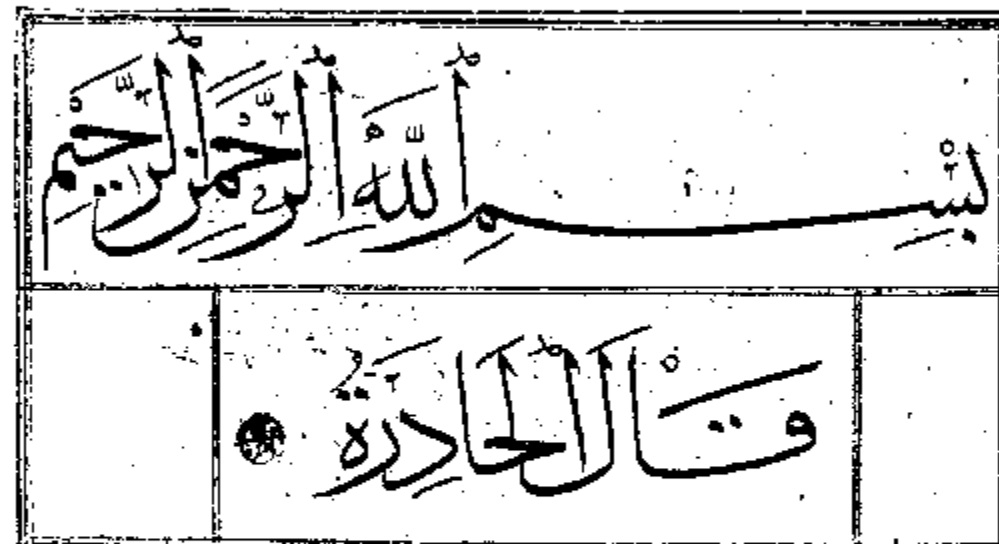 بِسْمِ ٱللَّهِ ٱلرَّحْمَنِ ٱلرَّحِيمِ
قَالَ ٱلْحَادِرَةُ